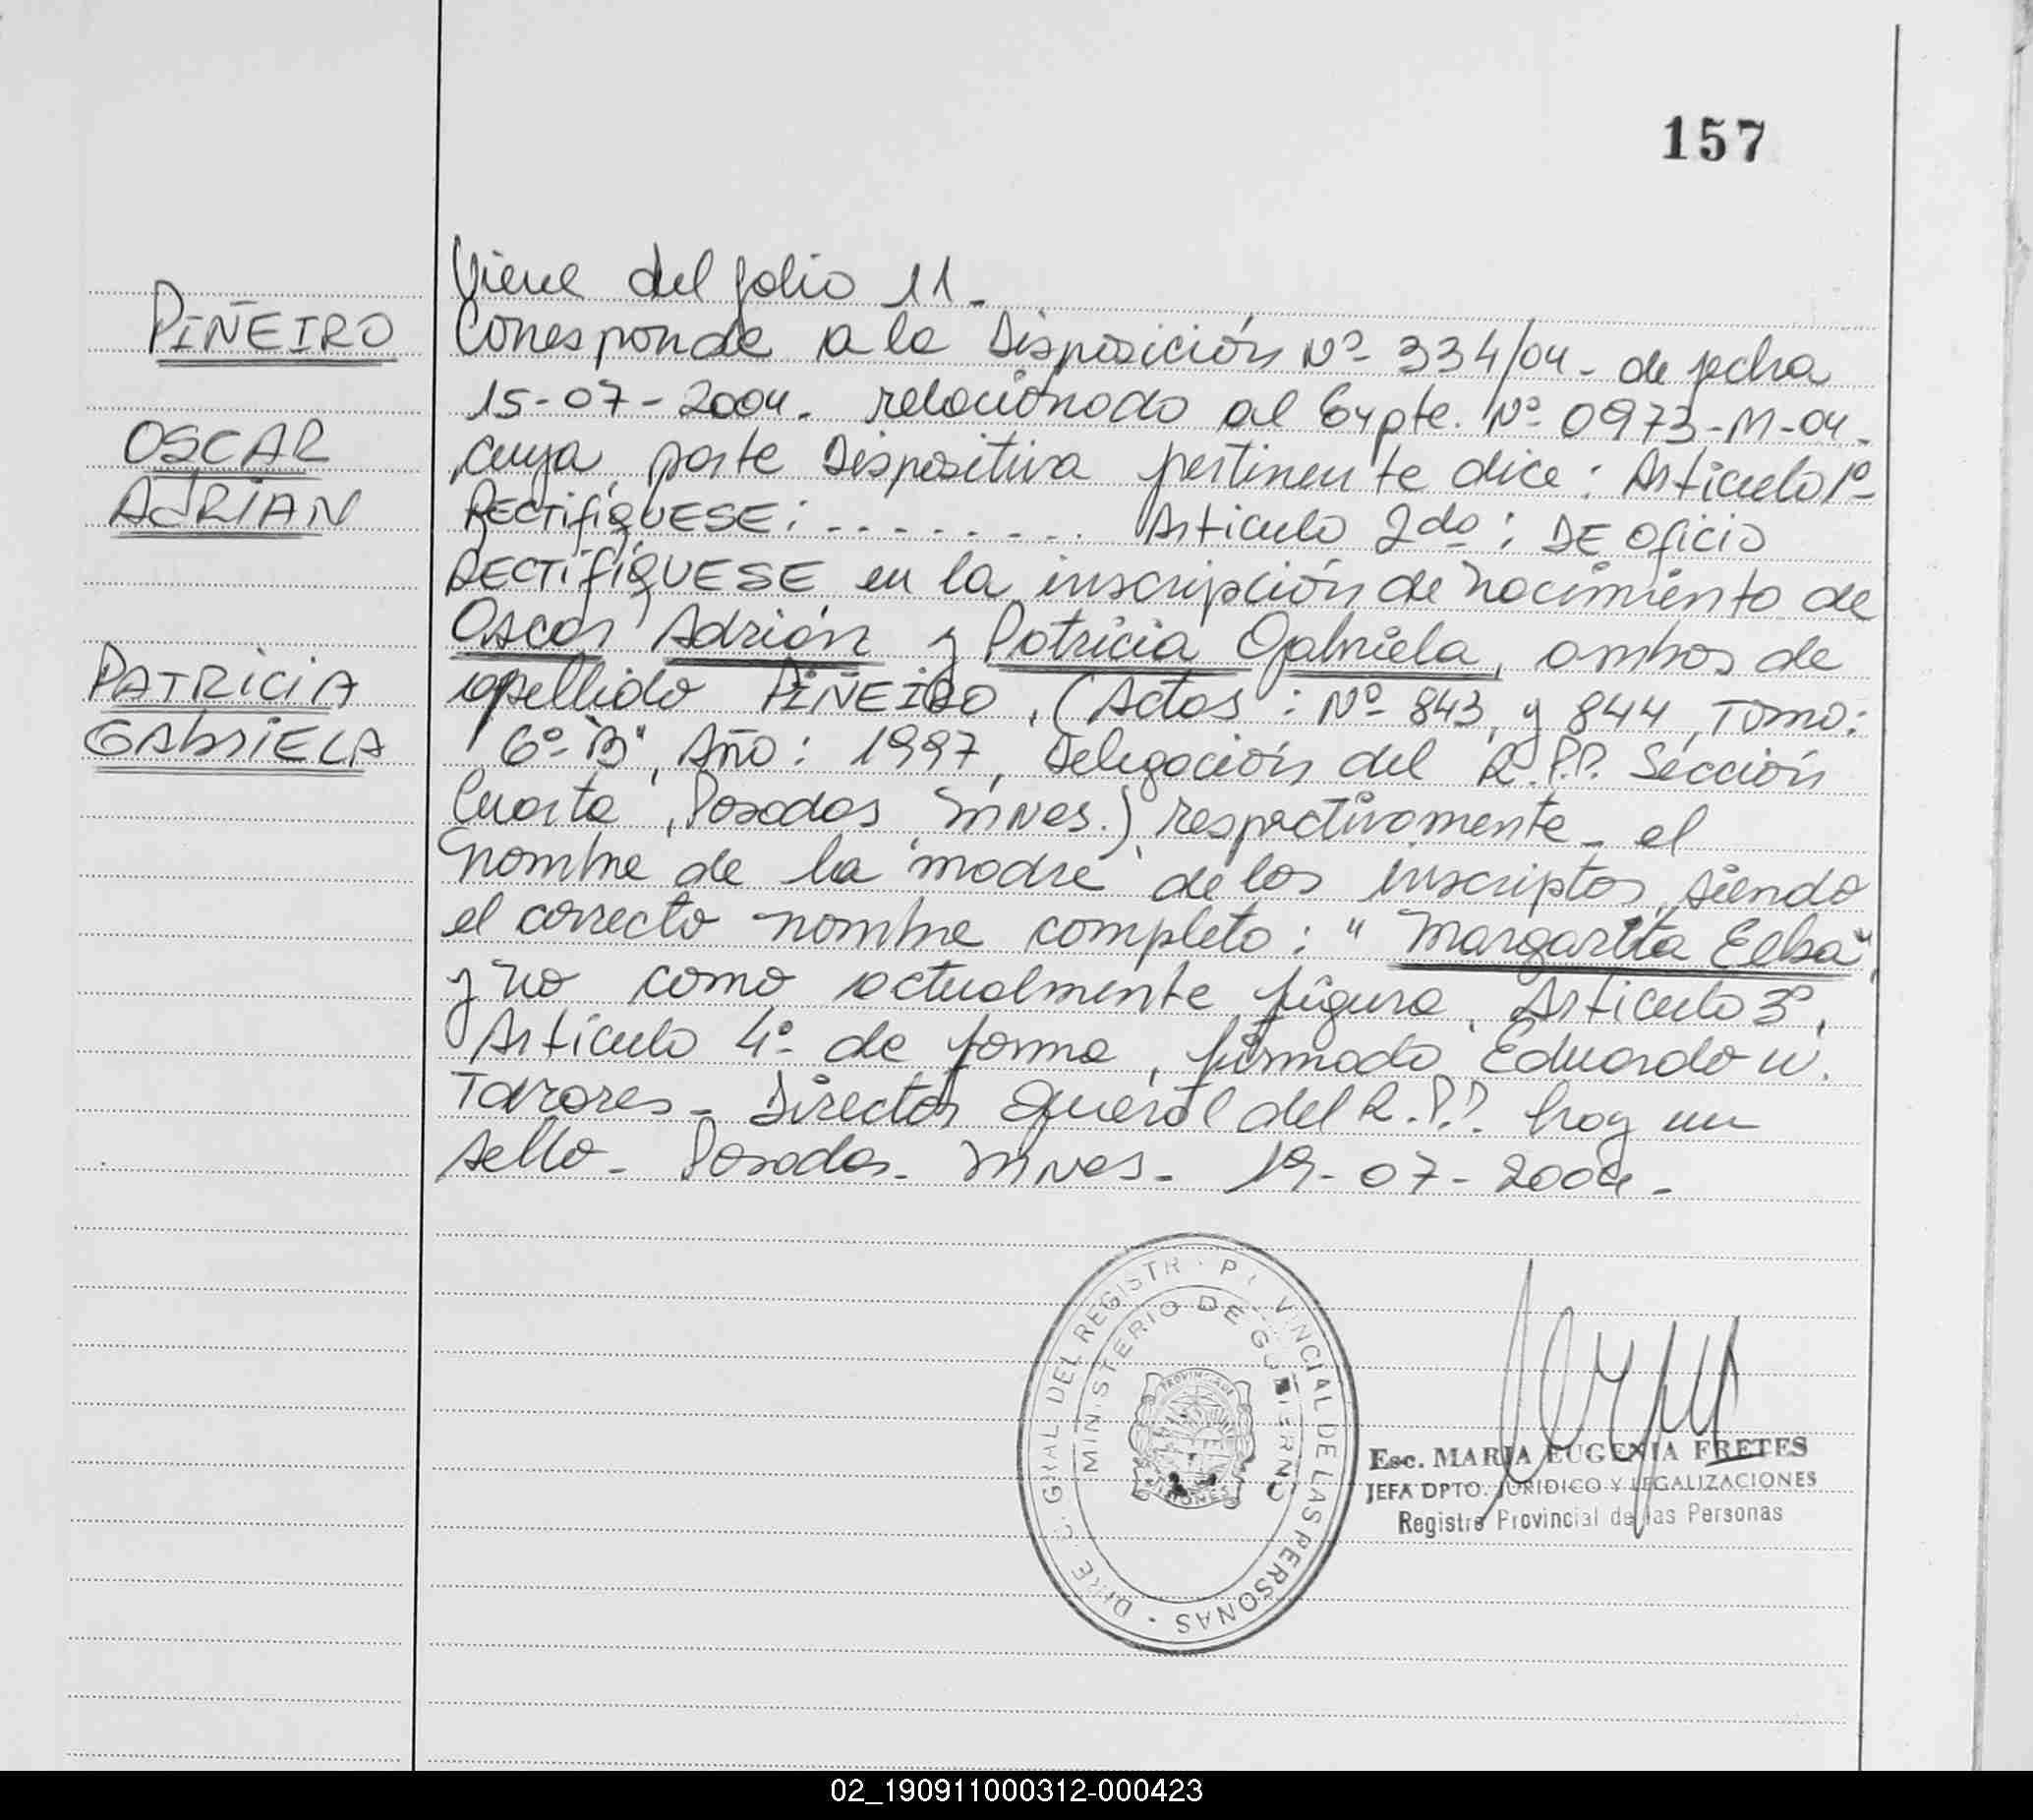 157
Viene del folio 11.
PIÑEIRO
Corresponde a la Disposición Nº 334/04 - de fecha
15-07-2004. relacionado al Expte. Nº 0973-M-04.
OSCAR
cuya parte Dispositiva pertinente dice: Articulo 1º
ADRIAN
RECTIFÍQUESE: - - - - - - - - . Articulo 2do: DE Oficio
RECTIFÍQUESE en la inscripción de nacimiento de
Oscar Adrián y Patricia Gabriela, ambos de
PATRICIA
apellido PIÑEIRO, (Actas: Nº 843, y 844, Tomo:
GABRIELA
6º "B", Año: 1997, Delegación del R.P.P. Sección
Cuarta, Posadas Mnes.) respectivamente - el
nombre de la madre de los inscriptos, siendo
el correcto nombre completo: "Margarita Elba",
y no como actualmente figura. Articulo 3º,
Artículo 4º de forma, firmado Eduardo W.
Tavares - Director General del R.P.P. hay un
sello - Posadas - Mnes - 19-07-2004 -
DIRECC. GRAL. DEL REGISTR. PROVINCIAL DE LAS PERSONAS
MINISTERIO DE GOBIERNO
PROVINCIA DE
MISIONES
Esc. MARIA EUGENIA FRETES
JEFA DPTO. JURIDICO Y LEGALIZACIONES
Registro Provincial de las Personas
02_190911000312-000423